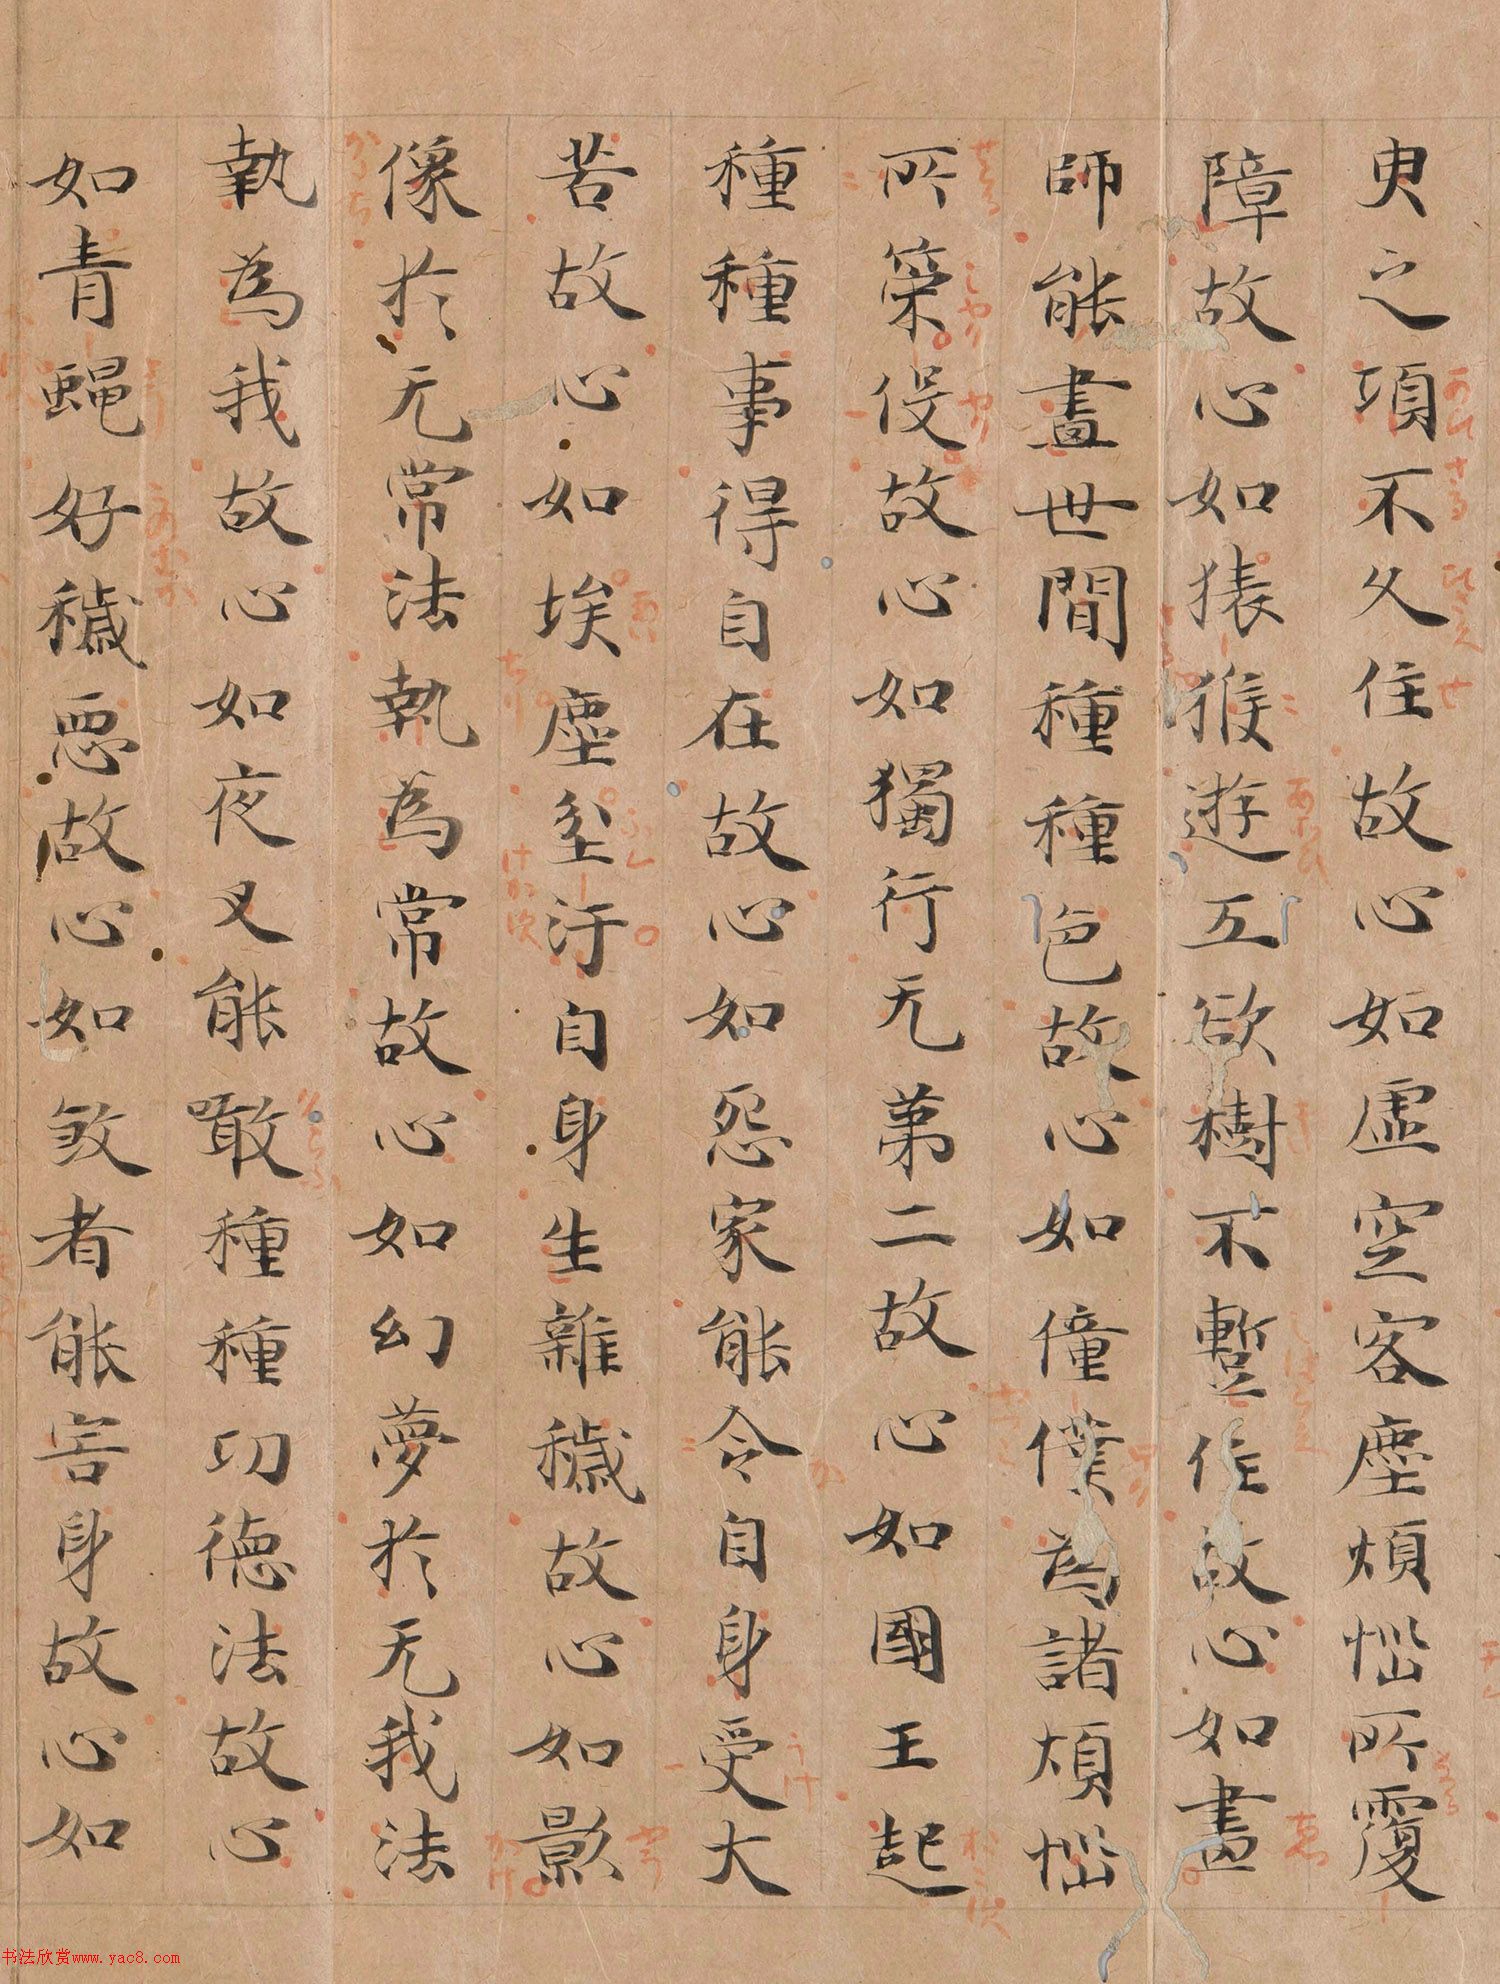 臾之項不久住故心如虛空客塵煩惱所覆
障故心如猨猴遊五欲樹不暫住故心如畫
師能畫世間種種色故心如僮僕為諸煩惱
所策役故心如獨行无第二故心如國王起
種種事得自在故心如怨家能令自身受大
苦故心如埃塵坌汙自身生雜穢故心如影
像於无常法執為常故心如幻夢於无我法
執為我故心如夜叉能噉種種功德法故心
如青蠅好穢惡故心如敓者能害身故心如
书法欣赏www.yac8.com